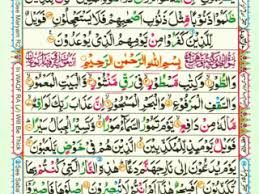 ظَلَمُوْا ذَنُوْبًا مِّثْلَ ذَنُوْبِ اَصْحٰبِهِمْ فَلَا يَسْتَعْجِلُوْنِ
لِّلَّذِيْنَ كَفَرُوْا مِنْ يَّوْمِهِمُ الَّذِيْ يُوْعَدُوْنَ
بِسْمِ اللّٰهِ الرَّحْمٰنِ الرَّحِيْمِ
وَالطُّوْرِ وَكِتٰبٍ مَّسْطُوْرٍ فِيْ رَقٍّ مَّنْشُوْرٍ وَّالْبَيْتِ الْمَعْمُوْرِ
وَالسَّقْفِ الْمَرْفُوْعِ وَالْبَحْرِ الْمَسْجُوْرِ اِنَّ عَذَابَ رَبِّكَ لَوَاقِعٌ
مَّا لَهٗ مِنْ دَافِعٍ يَّوْمَ تَمُوْرُ السَّمَآءُ مَوْرًا وَّتَسِيْرُ الْجِبَالُ سَيْرًا
فَوَيْلٌ يَّوْمَئِذٍ لِّلْمُكَذِّبِيْنَ الَّذِيْنَ هُمْ فِيْ خَوْضٍ يَّلْعَبُوْنَ
يَوْمَ يُدَعُّوْنَ اِلٰى نَارِ جَهَنَّمَ دَعًّا هٰذِهِ النَّارُ الَّتِيْ كُنْتُمْ
See Maryam
in WAQF RA (ر) Will Be Thick